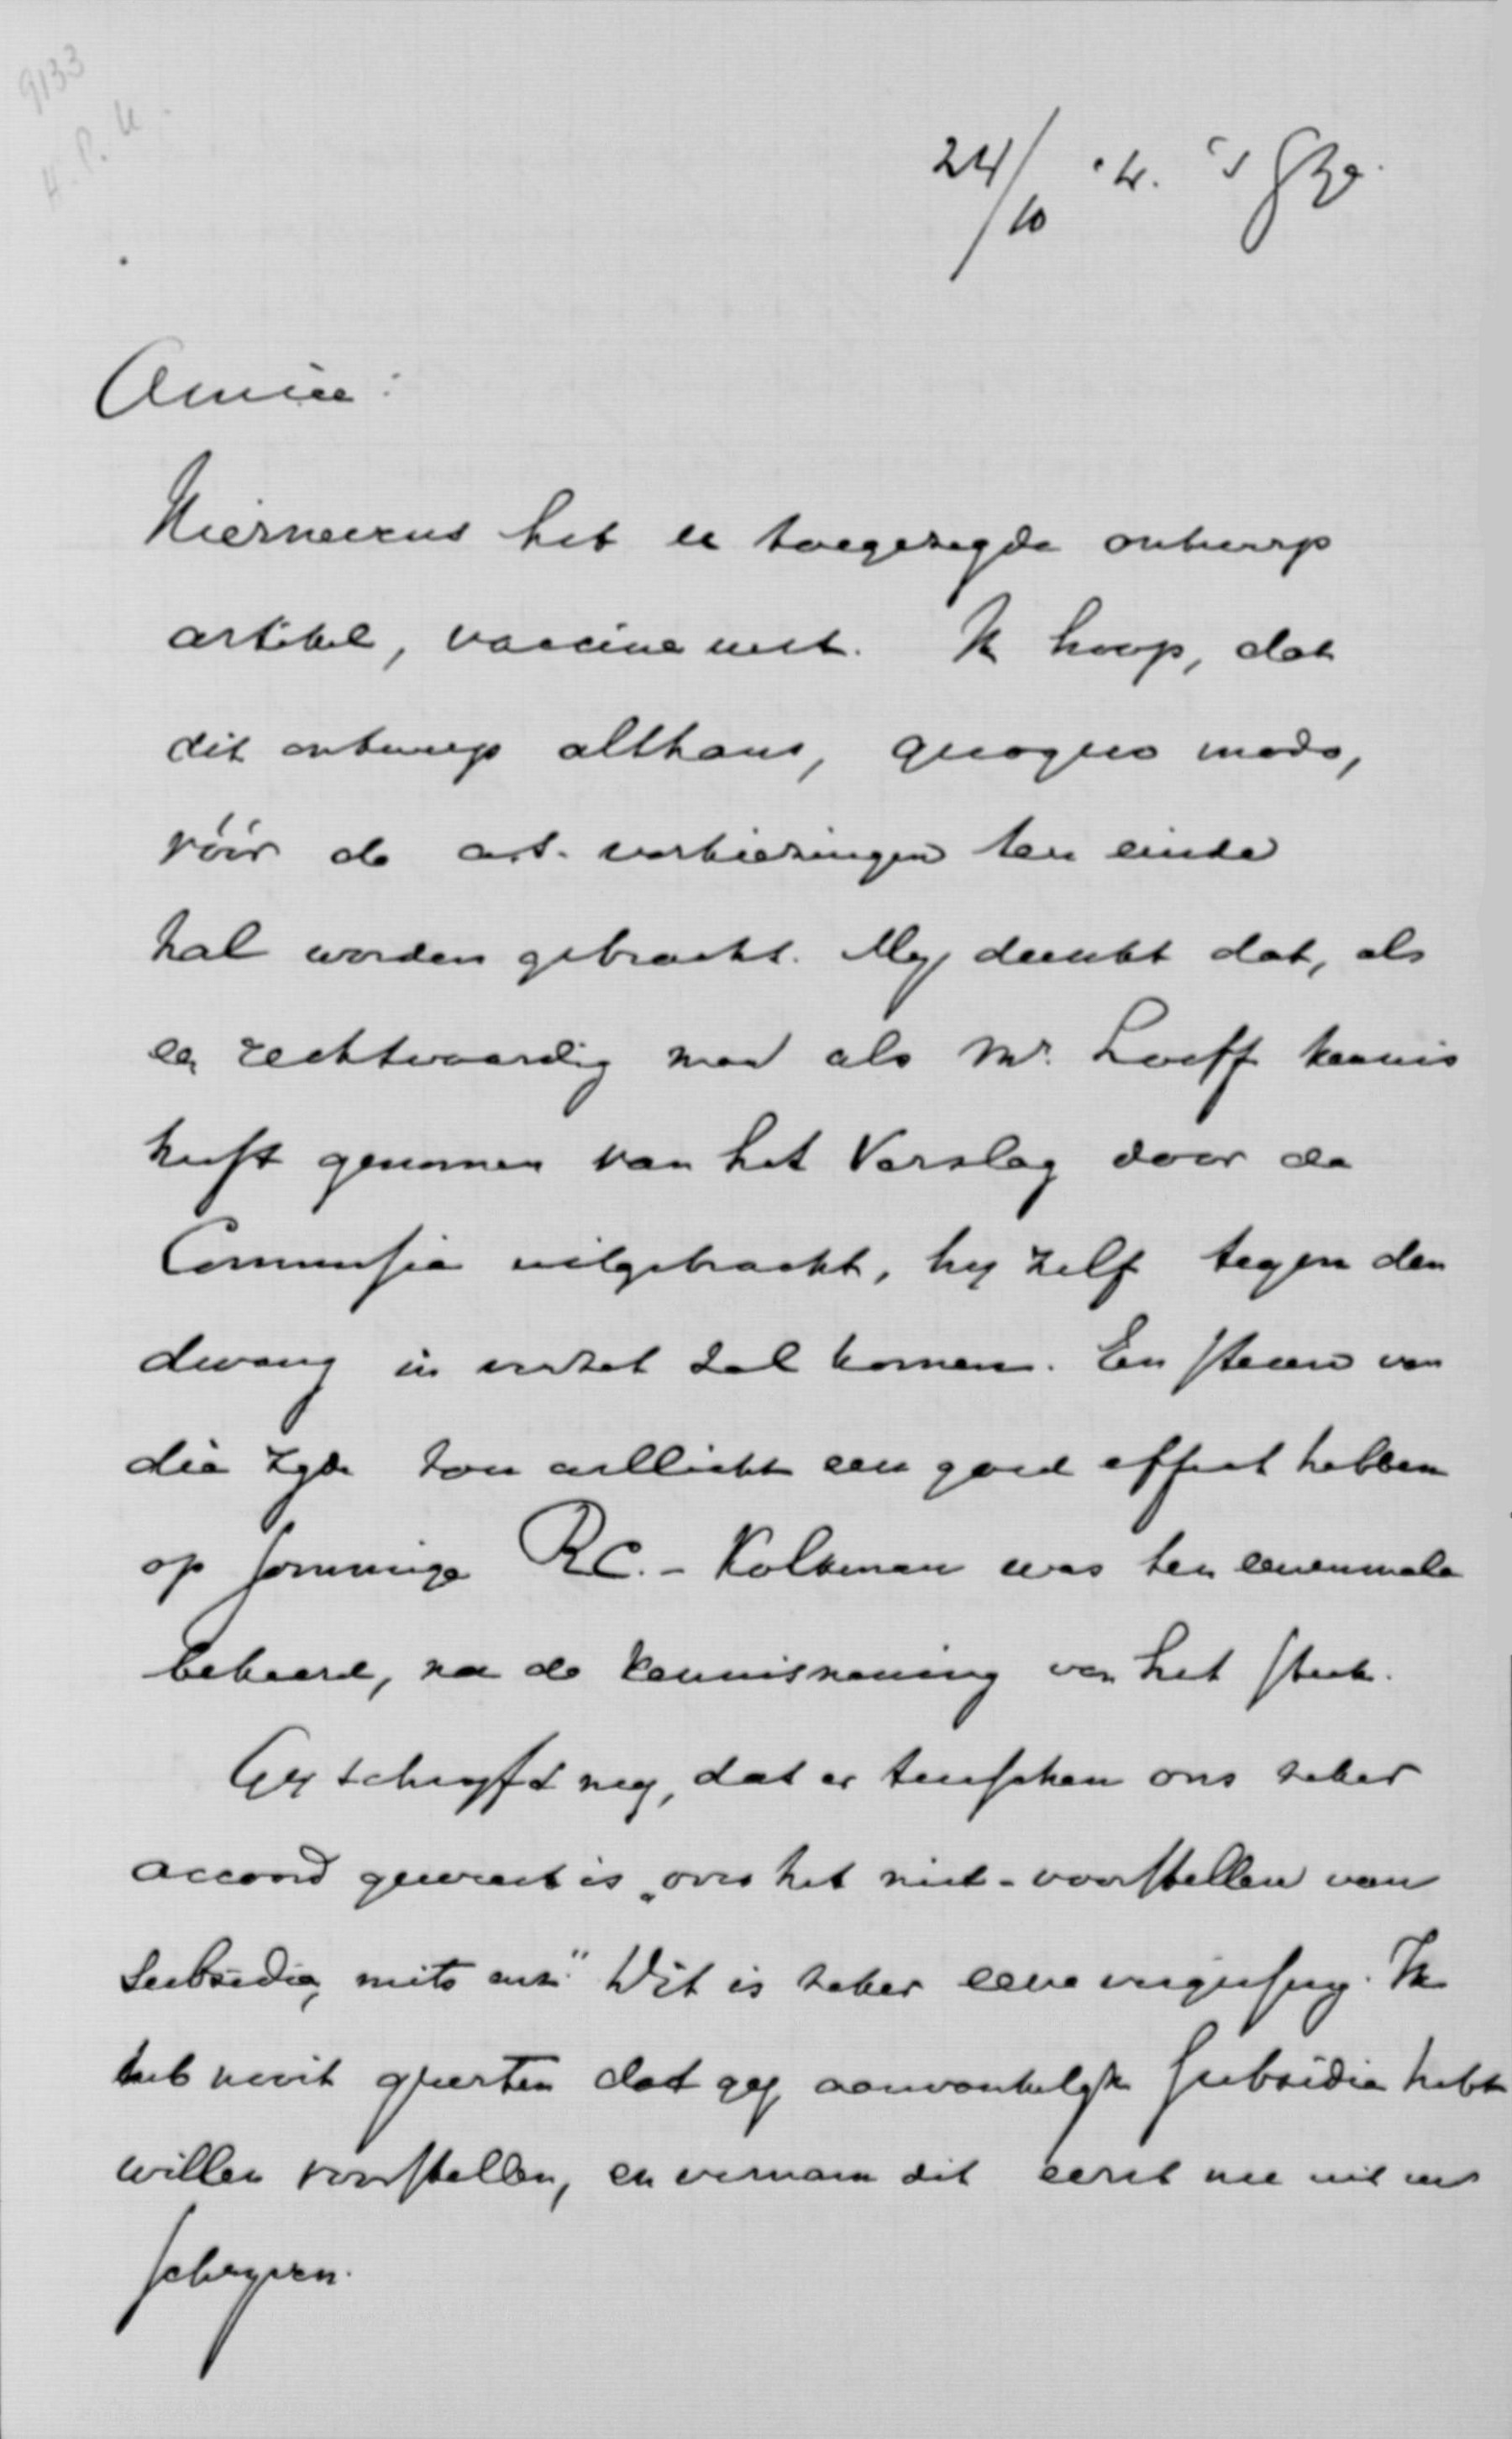 9133
24/10 '4. 's Gge.
Amice:
Hiernevens het u toegezegde ontwerp
artikel, vaccine wet. Ik hoop, dat
dit ontwerp althans, quoquo modo,
vóór de a.s. verkiezingen ten einde
zal worden gebracht. My dunkt dat, als
een rechtvaardig man als Mr. Loeff kennis
heeft genomen van het Verslag door de
Commissie uitgebracht, hy zelf tegen den
dwang in verzet zal komen. Een steun van
die zyde zou wellicht een goed effect hebben
op sommige R.C. - Kolkman was ten eenenmale
bekeerd, na de kennisneming van het stuk.
Gy schryft my, dat er tusschen ons zeker
accoord geweest is „over het niet-voorstellen van
subsidie, mits enz." Dit is zeker eene vergissing. Ik
heb nooit geweten dat gy aanvankelyk subsidie hebt
willen voorstellen, en vernam dit eerst nu uit uw
schryven.